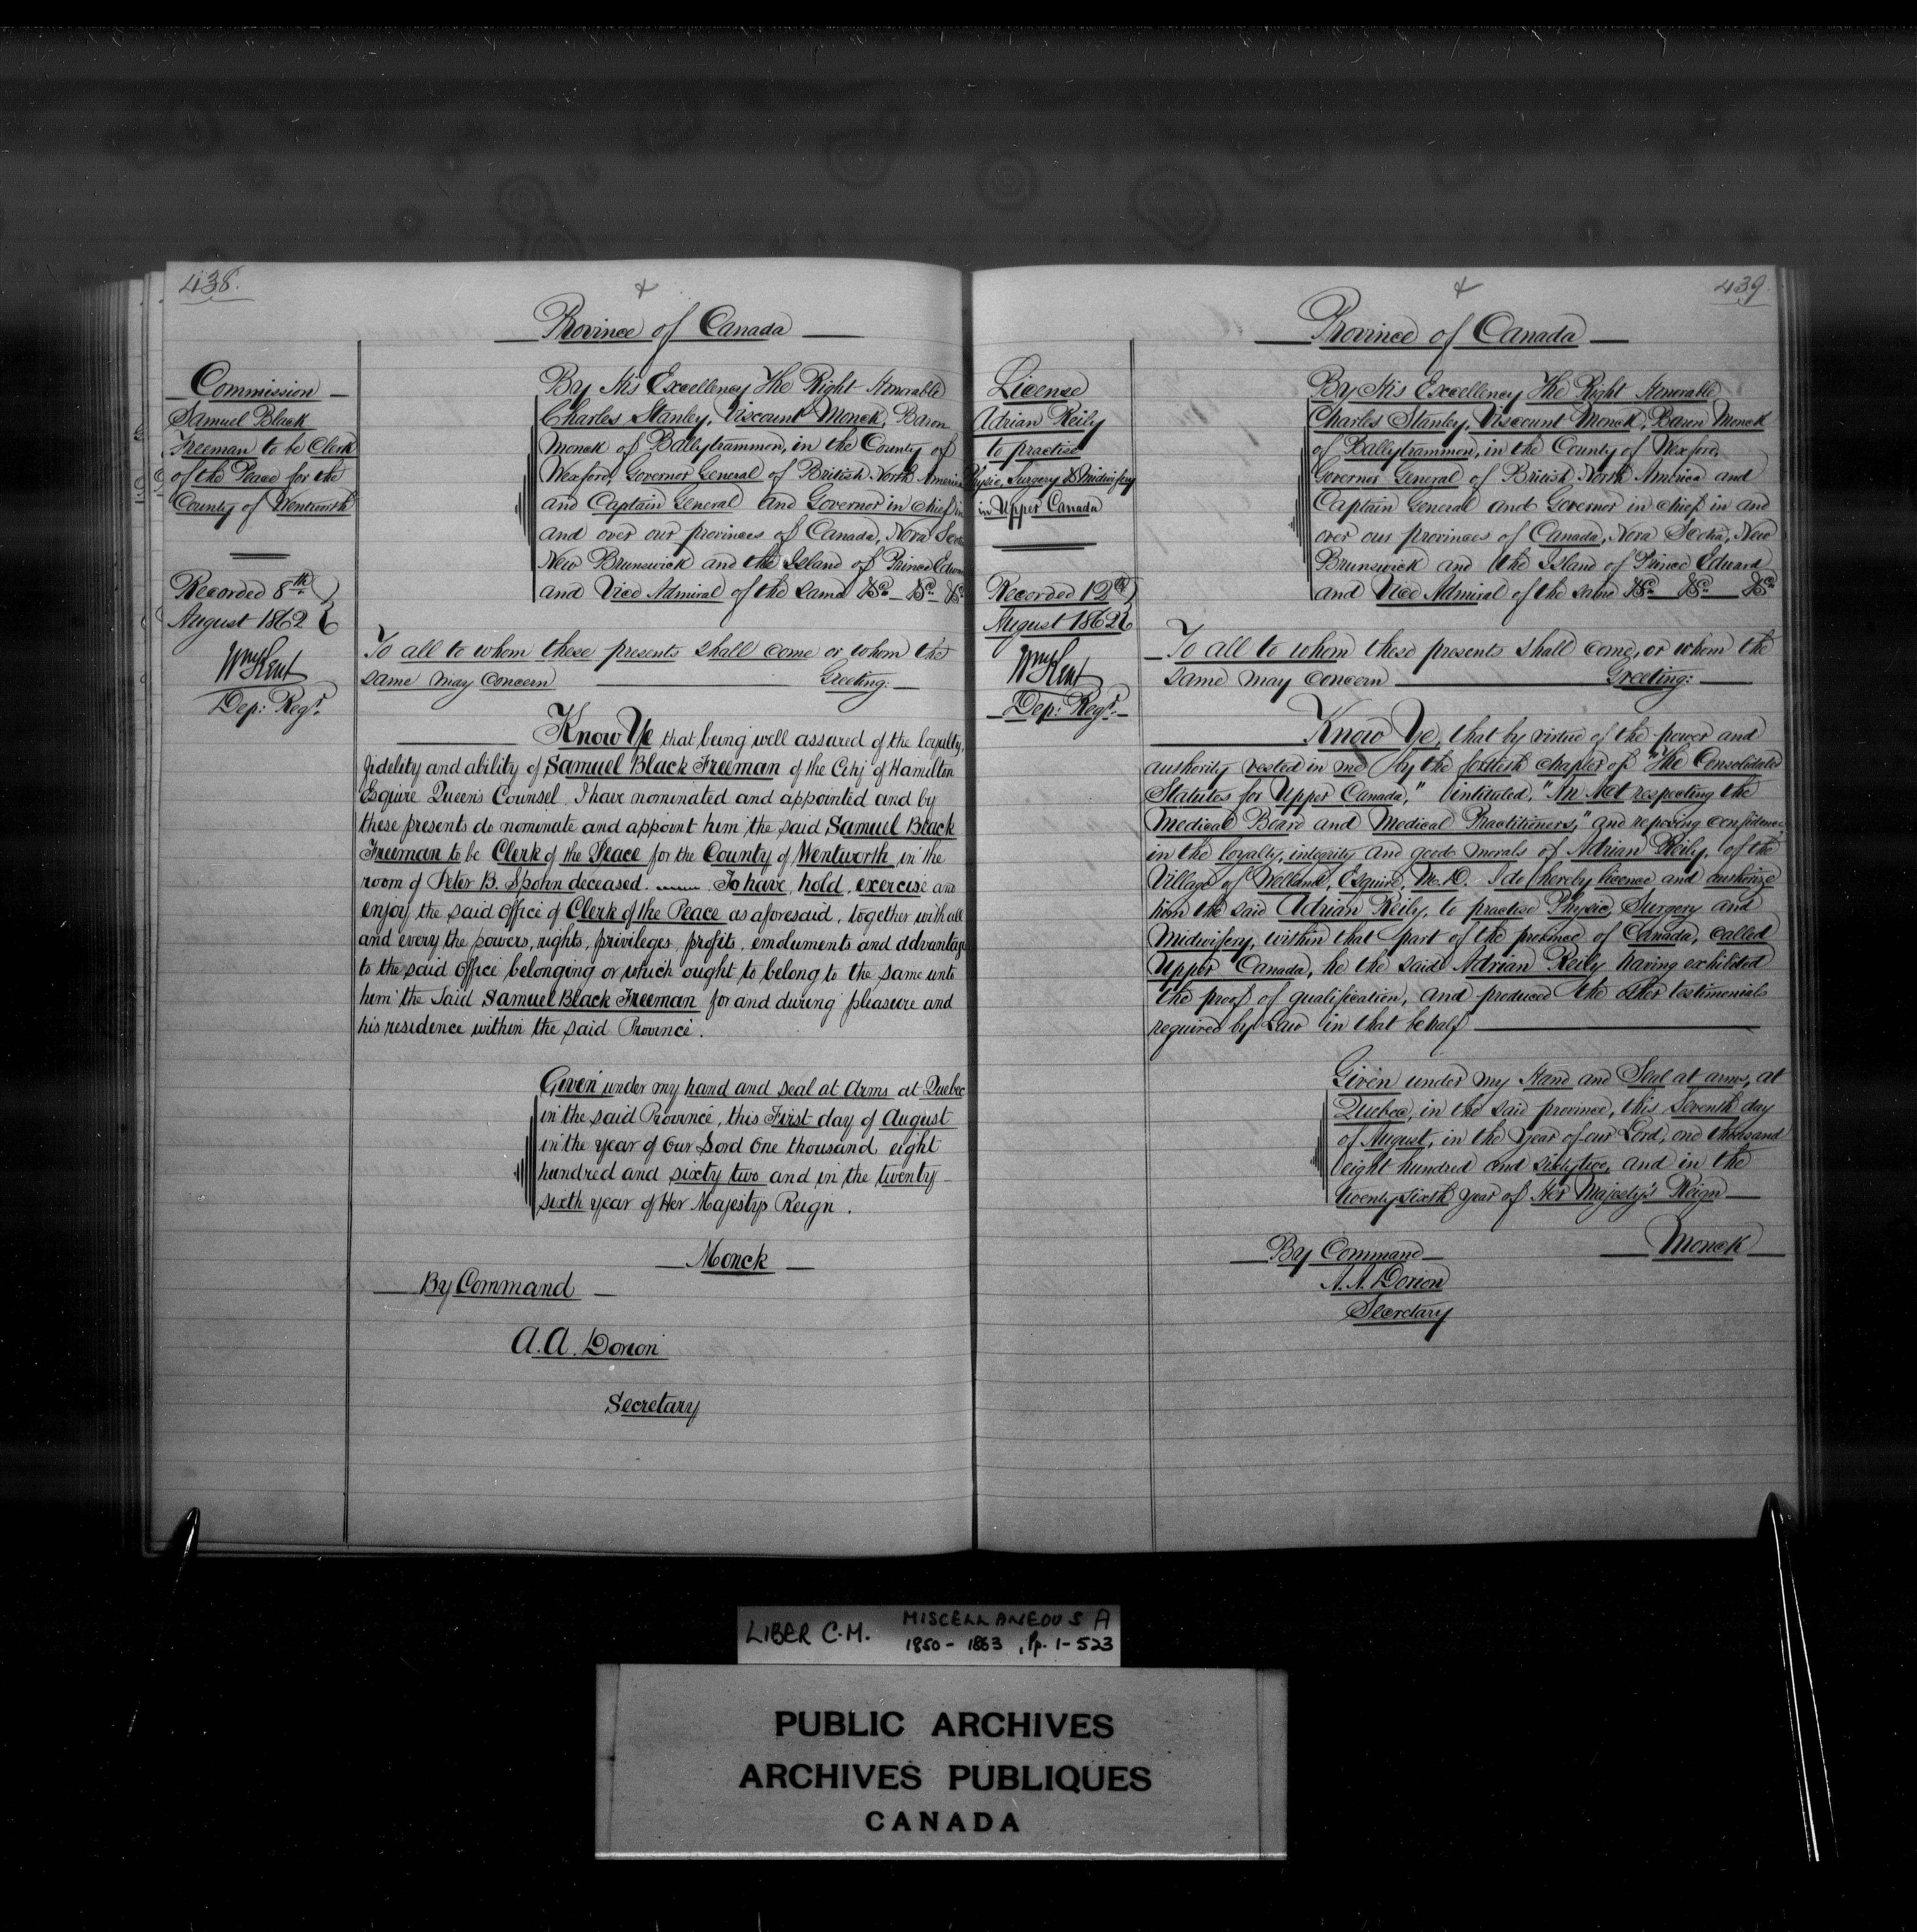 438.
Province of Canada
Commission
Samuel Black
Freeman to be Clerk
of the Peace for the
County of Wentworth
Recorded 8th
August 1862
Wm Kent
Dep: Regr.
By His Excellency The Right Honorable
Charles Stanley, Viscount Monck, Baron
Monck of Ballytrammon, in the County of
Wexford, Governor General of British North America
and Captain General and Governor in chief in
and over our provinces of Canada, Nova Scotia
New Brunswick and the Island of Prince Edward
and Vice Admiral of the same &c. &c. &c.
To all to whom these presents shall come or whom the
same may concern Greeting:
Know Ye that being well assured of the loyalty,
fidelity and ability of Samuel Black Freeman of the City of Hamilton
Esquire Queen's Counsel, I have nominated and appointed and by
these presents do nominate and appoint him the said Samuel Black
Freeman to be Clerk of the Peace for the County of Wentworth in the
room of Peter B. Spohn deceased. To have, hold, exercise and
enjoy the said Office of Clerk of the Peace as aforesaid, together with all
and every the powers, rights, privileges, profits, emoluments and advantage
to the said Office belonging or which ought to belong to the same unto
him the Said Samuel Black Freeman for and during pleasure and
his residence within the said Province.
Given under my hand and seal at Arms at Quebec
in the said Province, this First day of August
in the year of Our Lord One thousand eight
hundred and sixty two and in the twenty
sixth year of Her Majestys Reign.
Monck
By Command
A.A. Dorion
Secretary
439.
Province of Canada
License
Adrian Reily
to practise
Physic, Surgery & Midwifery
in Upper Canada
Recorded 12th
August 1862
Wm Kent
Dep: Regr.
By His Excellency The Right Honorable
Charles Stanley, Viscount Monck, Baron Monck
of Ballytrammon, in the County of Wexford,
Governor General of British North America and
Captain General and Governor in chief in and
over our provinces of Canada, Nova Scotia, New
Brunswick and the Island of Prince Edward
and Vice Admiral of the same &c. &c. &c.
To all to whom these presents shall come, or whom the
same may concern Greeting:
Know Ye, that by virtue of the power and
authority vested in me by the fortieth chapter of "The Consolidated
Statutes for Upper Canada," intituled, "An Act respecting the
Medical Board and Medical Practitioners," and reposing confidence
in the loyalty, integrity and good morals of Adrian Reily, of the
Village of Welland, Esquire, M.D. I do hereby licence and authorize
him the said Adrian Reily, to practise Physic, Surgery and
Midwifery, within that part of the province of Canada, called
Upper Canada, he the said Adrian Reily having exhibited
the proof of qualification, and produced the other testimonials
required by Law in that behalf
Given under my Hand and Seal at arms, at
Quebec, in the said province, this Seventh day
of August, in the Year of our Lord, one thousand
eight hundred and sixty two, and in the
twenty sixth Year of Her Majesty's Reign
Monck
By Command
A.A. Dorion
Secretary
LIBER C.M. MISCELLANEOUS A
1850 - 1863, Pp. 1-523
PUBLIC ARCHIVES
ARCHIVES PUBLIQUES
CANADA